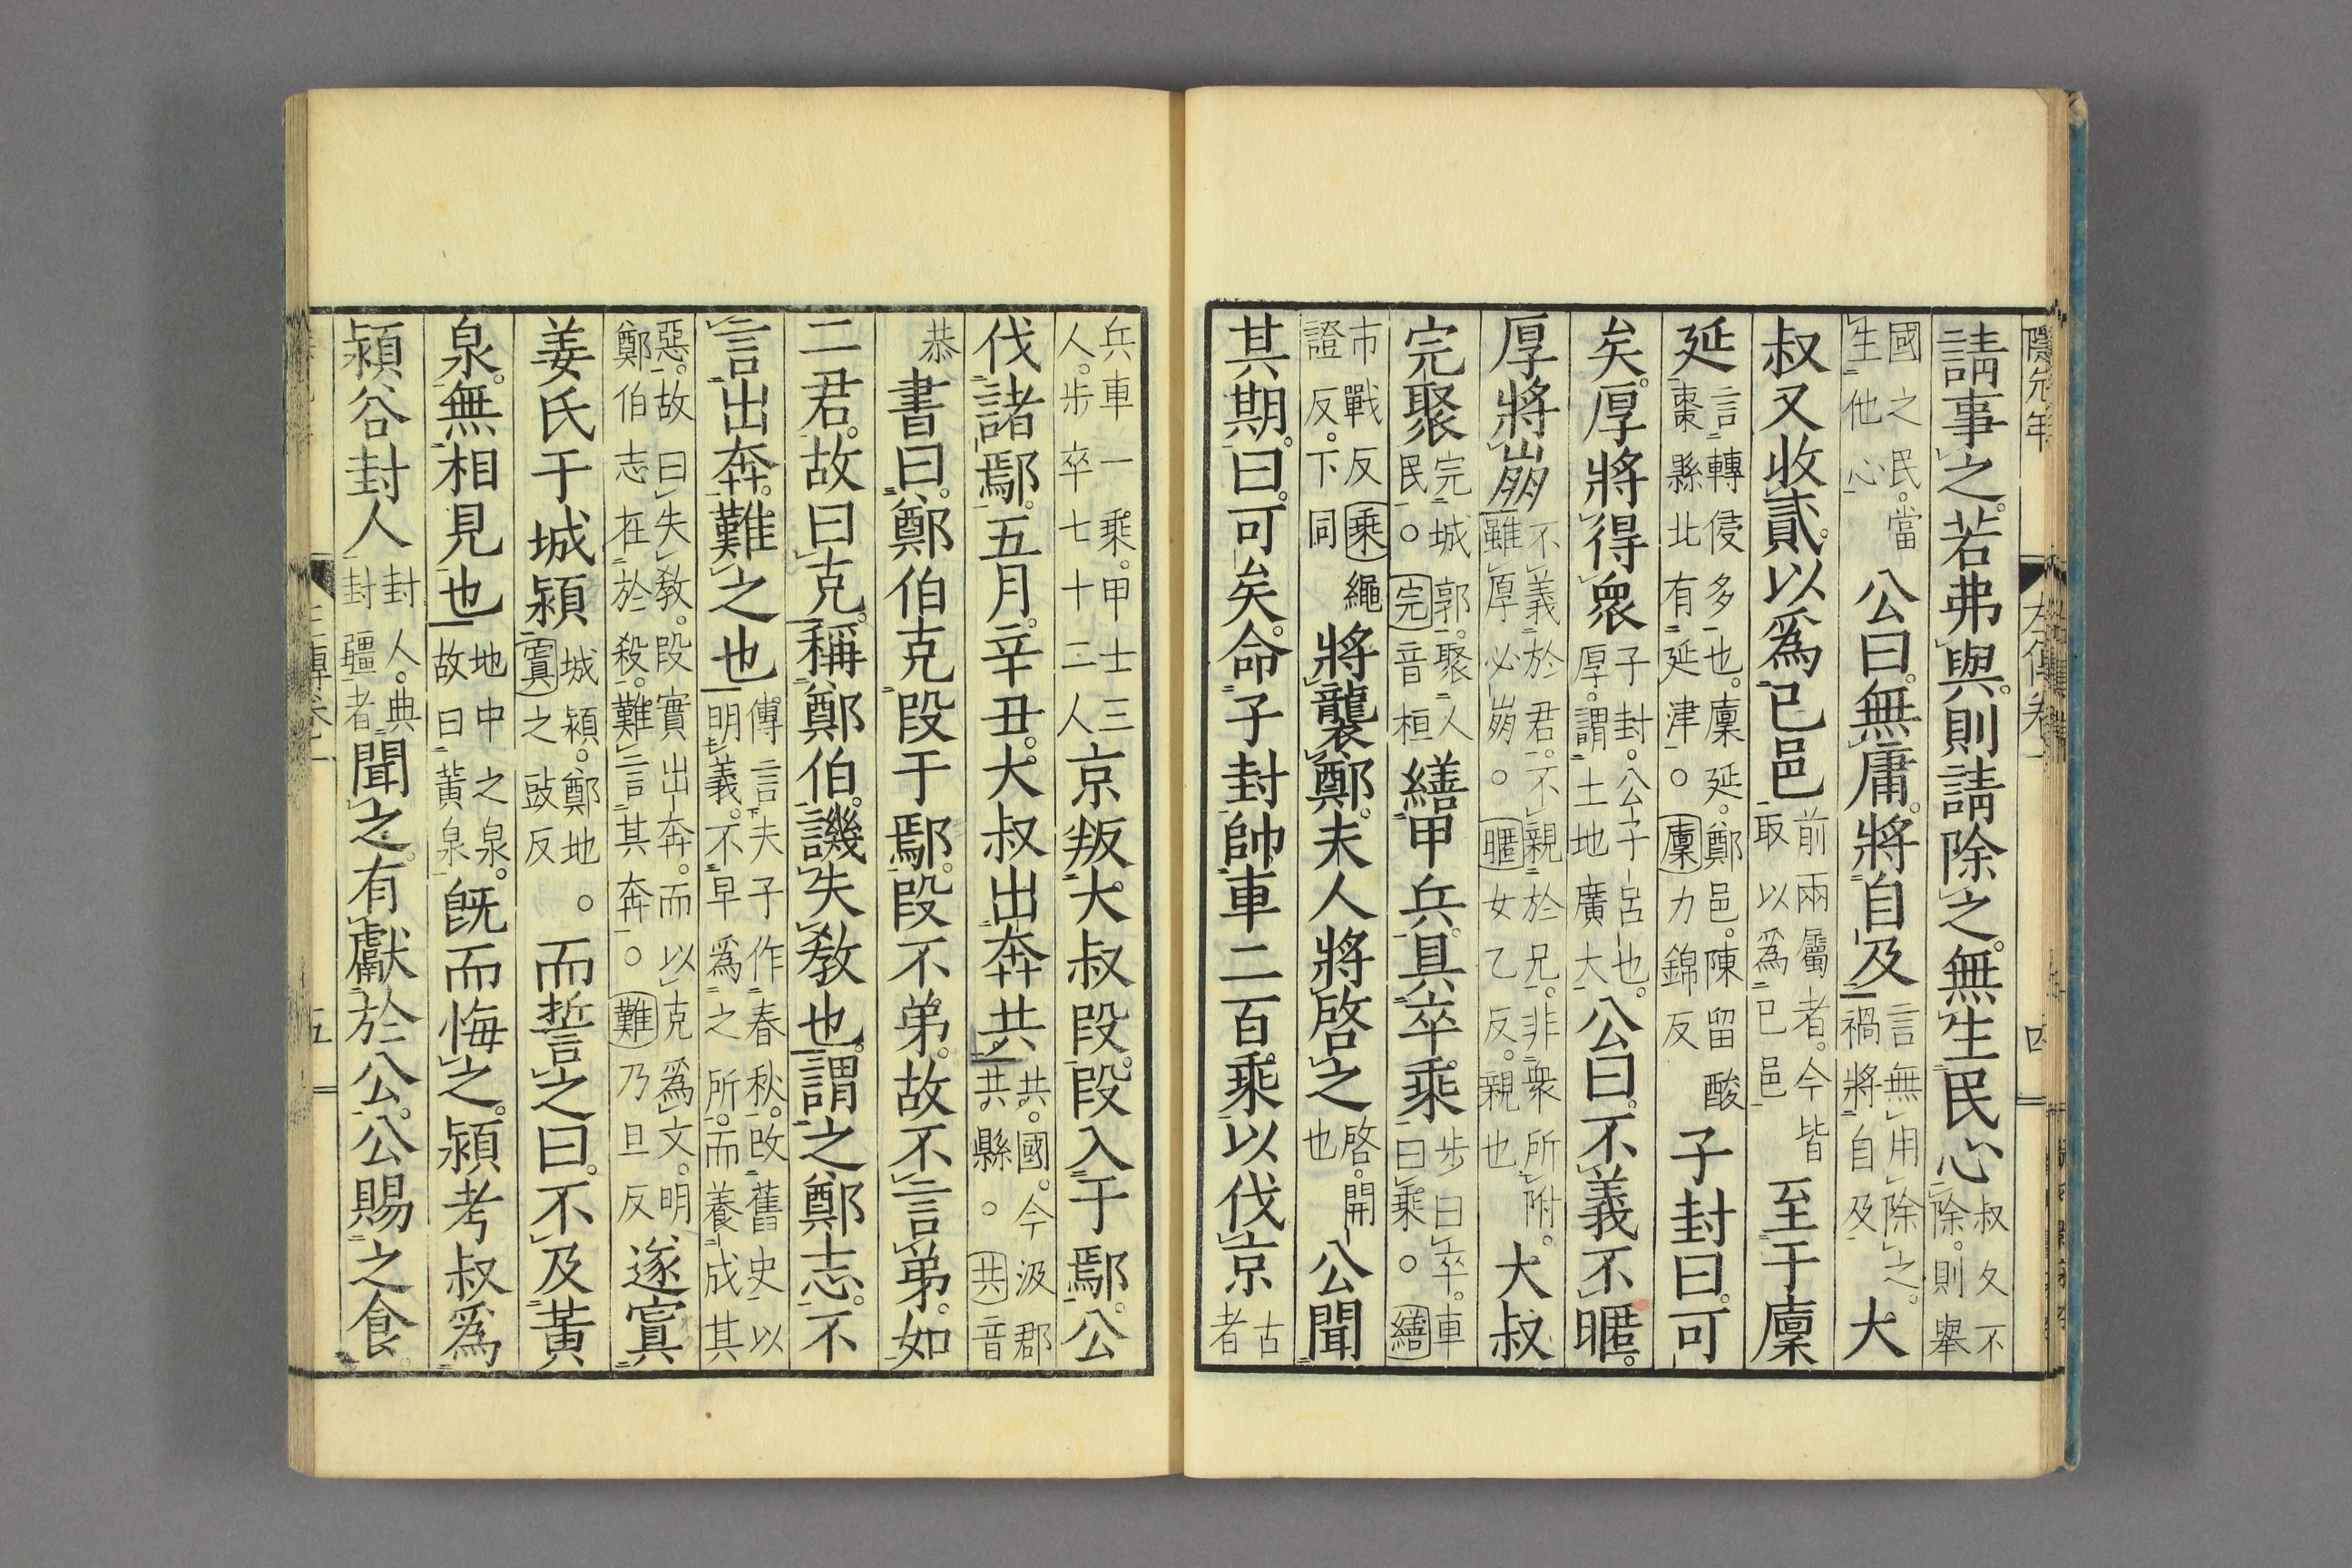 隱元年
左傳卷一
四
請事之。若弗與。則請除之。無生民心叔久不除。則舉
國之民。當生他心公曰。無庸。將自及言無用除之。禍將自及大
叔又收貳。以爲已邑前兩屬者。今皆取以爲已邑至于廩
延言轉侵多也。廩延。鄭邑。陳留酸棗縣北有延津。○廩力錦反子封曰。可
矣。厚將得衆子封。公子呂也。厚。謂土地廣大公曰。不義不暱。
厚將崩不義於君。不親於兄。非衆所附。雖厚必崩。○暱女乙反。親也大叔
完聚完城郭。聚人民。○完音桓繕甲兵。具卒乘步曰卒。車曰乘。○繕
市戰反乘繩證反。下同將襲鄭。夫人將啓之啓。開也公聞
其期。曰。可矣。命子封帥車二百乘以伐京古者
兵車一乘。甲士三人。步卒七十二人京叛大叔段。段入于鄢。公
伐諸鄢。五月。辛丑。大叔出奔共共。國。今汲郡共。縣。○共音
恭書曰。鄭伯克段于鄢。段不弟。故不言弟。如
二君。故曰克。稱鄭伯。譏失教也。謂之鄭志。不
言出奔。難之也傳言夫子作春秋。改舊史以明義。不早爲之所。而養成其
惡。故曰失教。段實出奔。而以克爲文。明鄭伯志在於殺。難言其奔。○難乃旦反遂寘
姜氏于城潁城潁。鄭地。○寘之豉反而誓之曰。不及黃
泉。無相見也地中之泉。故曰黃泉既而悔之。潁考叔爲
潁谷封人封人。典封疆者聞之。有獻於公。公賜之食。
五